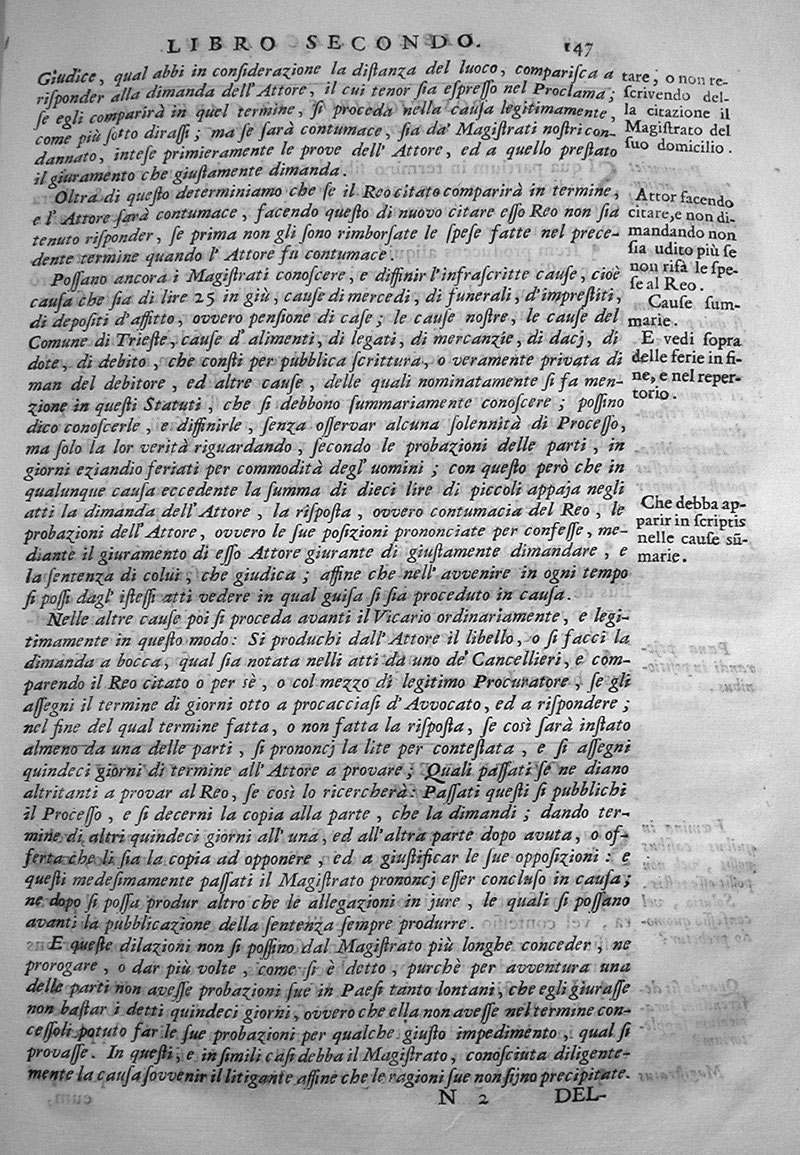 LIBRO SECONDO.
147
Giudice, qual abbi in conſiderazione la diſtanza del luoco, compariſca a
riſponder alla dimanda dell'Attore, il cui tenor ſia eſpreſſo nel Proclama;
ſe egli comparirà in quel termine, ſi proceda nella cauſa legitimamente,
come più ſotto diraſſi; ma ſe ſarà contumace, ſia da' Magiſtrati noſtri con-
dannato, inteſe primieramente le prove dell'Attore, ed a quello preſtato
il giuramento che giuſtamente dimanda.
Oltra di queſto determiniamo che ſe il Reo citato comparirà in termine,
e l'Attore ſarà contumace, facendo queſto di nuovo citare eſſo Reo non ſia
tenuto riſponder, ſe prima non gli ſono rimborſate le ſpeſe fatte nel prece-
dente termine quando l'Attore fu contumace.
Poſſano ancora i Magiſtrati conoſcere, e diffinir l'infraſcritte cauſe, cioè
cauſa che ſia di lire 25 in giù, cauſe di mercedi, di funerali, d'impreſtiti,
di depoſiti d'affitto, ovvero penſione di caſe; le cauſe noſtre, le cauſe del
Comune di Trieſte, cauſe d'alimenti, di legati, di mercanzie, di dacj, di
dote, di debito, che conſti per pubblica ſcrittura, o veramente privata di
man del debitore, ed altre cauſe, delle quali nominatamente ſi fa men-
zione in queſti Statuti, che ſi debbono ſummariamente conoſcere; poſſino
dico conoſcerle, e diffinirle, ſenza oſſervar alcuna ſolennità di Proceſſo,
ma ſolo la lor verità riguardando, ſecondo le probazioni delle parti, in
giorni eziandio feriati per commodità degl'uomini; con queſto però che in
qualunque cauſa eccedente la ſumma di dieci lire di piccoli appaja negli
atti la dimanda dell'Attore, la riſpoſta, ovvero contumacia del Reo, le
probazioni dell'Attore, ovvero le ſue poſizioni prononciate per confeſſe, me-
diante il giuramento di eſſo Attore giurante di giuſtamente dimandare, e
la ſentenza di colui, che giudica; affine che nell'avvenire in ogni tempo
ſi poſſi dagl'iſteſſi atti vedere in qual guiſa ſi ſia proceduto in cauſa.
Nelle altre cauſe poi ſi proceda avanti il Vicario ordinariamente, e legi-
timamente in queſto modo: Si produchi dall'Attore il libello, o ſi facci la
dimanda a bocca, qual ſia notata nelli atti da uno de' Cancellieri, e com-
parendo il Reo citato o per sè, o col mezzo di legitimo Procuratore, ſe gli
aſſegni il termine di giorni otto a procacciaſi d'Avvocato, ed a riſpondere;
nel fine del qual termine fatta, o non fatta la riſpoſta, ſe così ſarà inſtato
almeno da una delle parti, ſi prononcj la lite per conteſtata, e ſi aſſegni
quindeci giorni di termine all'Attore a provare; Quali paſſati ſe ne diano
altritanti a provar al Reo, ſe così lo ricercherà: Paſſati queſti ſi pubblichi
il Proceſſo, e ſi decerni la copia alla parte, che la dimandi; dando ter-
mine di altri quindeci giorni all'una, ed all'altra parte dopo avuta, o of-
ferta che li ſia la copia ad opponere, ed a giuſtificar le ſue oppoſizioni: e
queſti medeſimamente paſſati il Magiſtrato prononcj eſſer concluſo in cauſa;
ne dopo ſi poſſa produr altro che le allegazioni in jure, le quali ſi poſſano
avanti la pubblicazione della ſentenza ſempre produrre.
E queſte dilazioni non ſi poſſino dal Magiſtrato più longhe conceder, ne
prorogare, o dar più volte, come ſi è detto, purchè per avventura una
delle parti non aveſſe probazioni ſue in Paeſi tanto lontani, che egli giuraſſe
non baſtar i detti quindeci giorni, ovvero che ella non aveſſe nel termine con-
ceſſoli potuto far le ſue probazioni per qualche giuſto impedimento, qual ſi
provaſſe. In queſti, e in ſimili caſi debba il Magiſtrato, conoſciuta diligente-
mente la cauſa ſovvenir il litigante affine che le ragioni ſue non ſijno precipitate.
N 2
DEL-
tare; o non re-
ſcrivendo del-
la citazione il
Magiſtrato del
ſuo domicilio.
Attor facendo
citare, e non di-
mandando non
ſia udito più ſe
non rifà le ſpe-
ſe al Reo.
Cauſe ſum-
marie.
E vedi ſopra
delle ferie in fi-
ne, e nel reper-
torio.
Che debba ap-
parir in ſcriptis
nelle cauſe sũ-
marie.